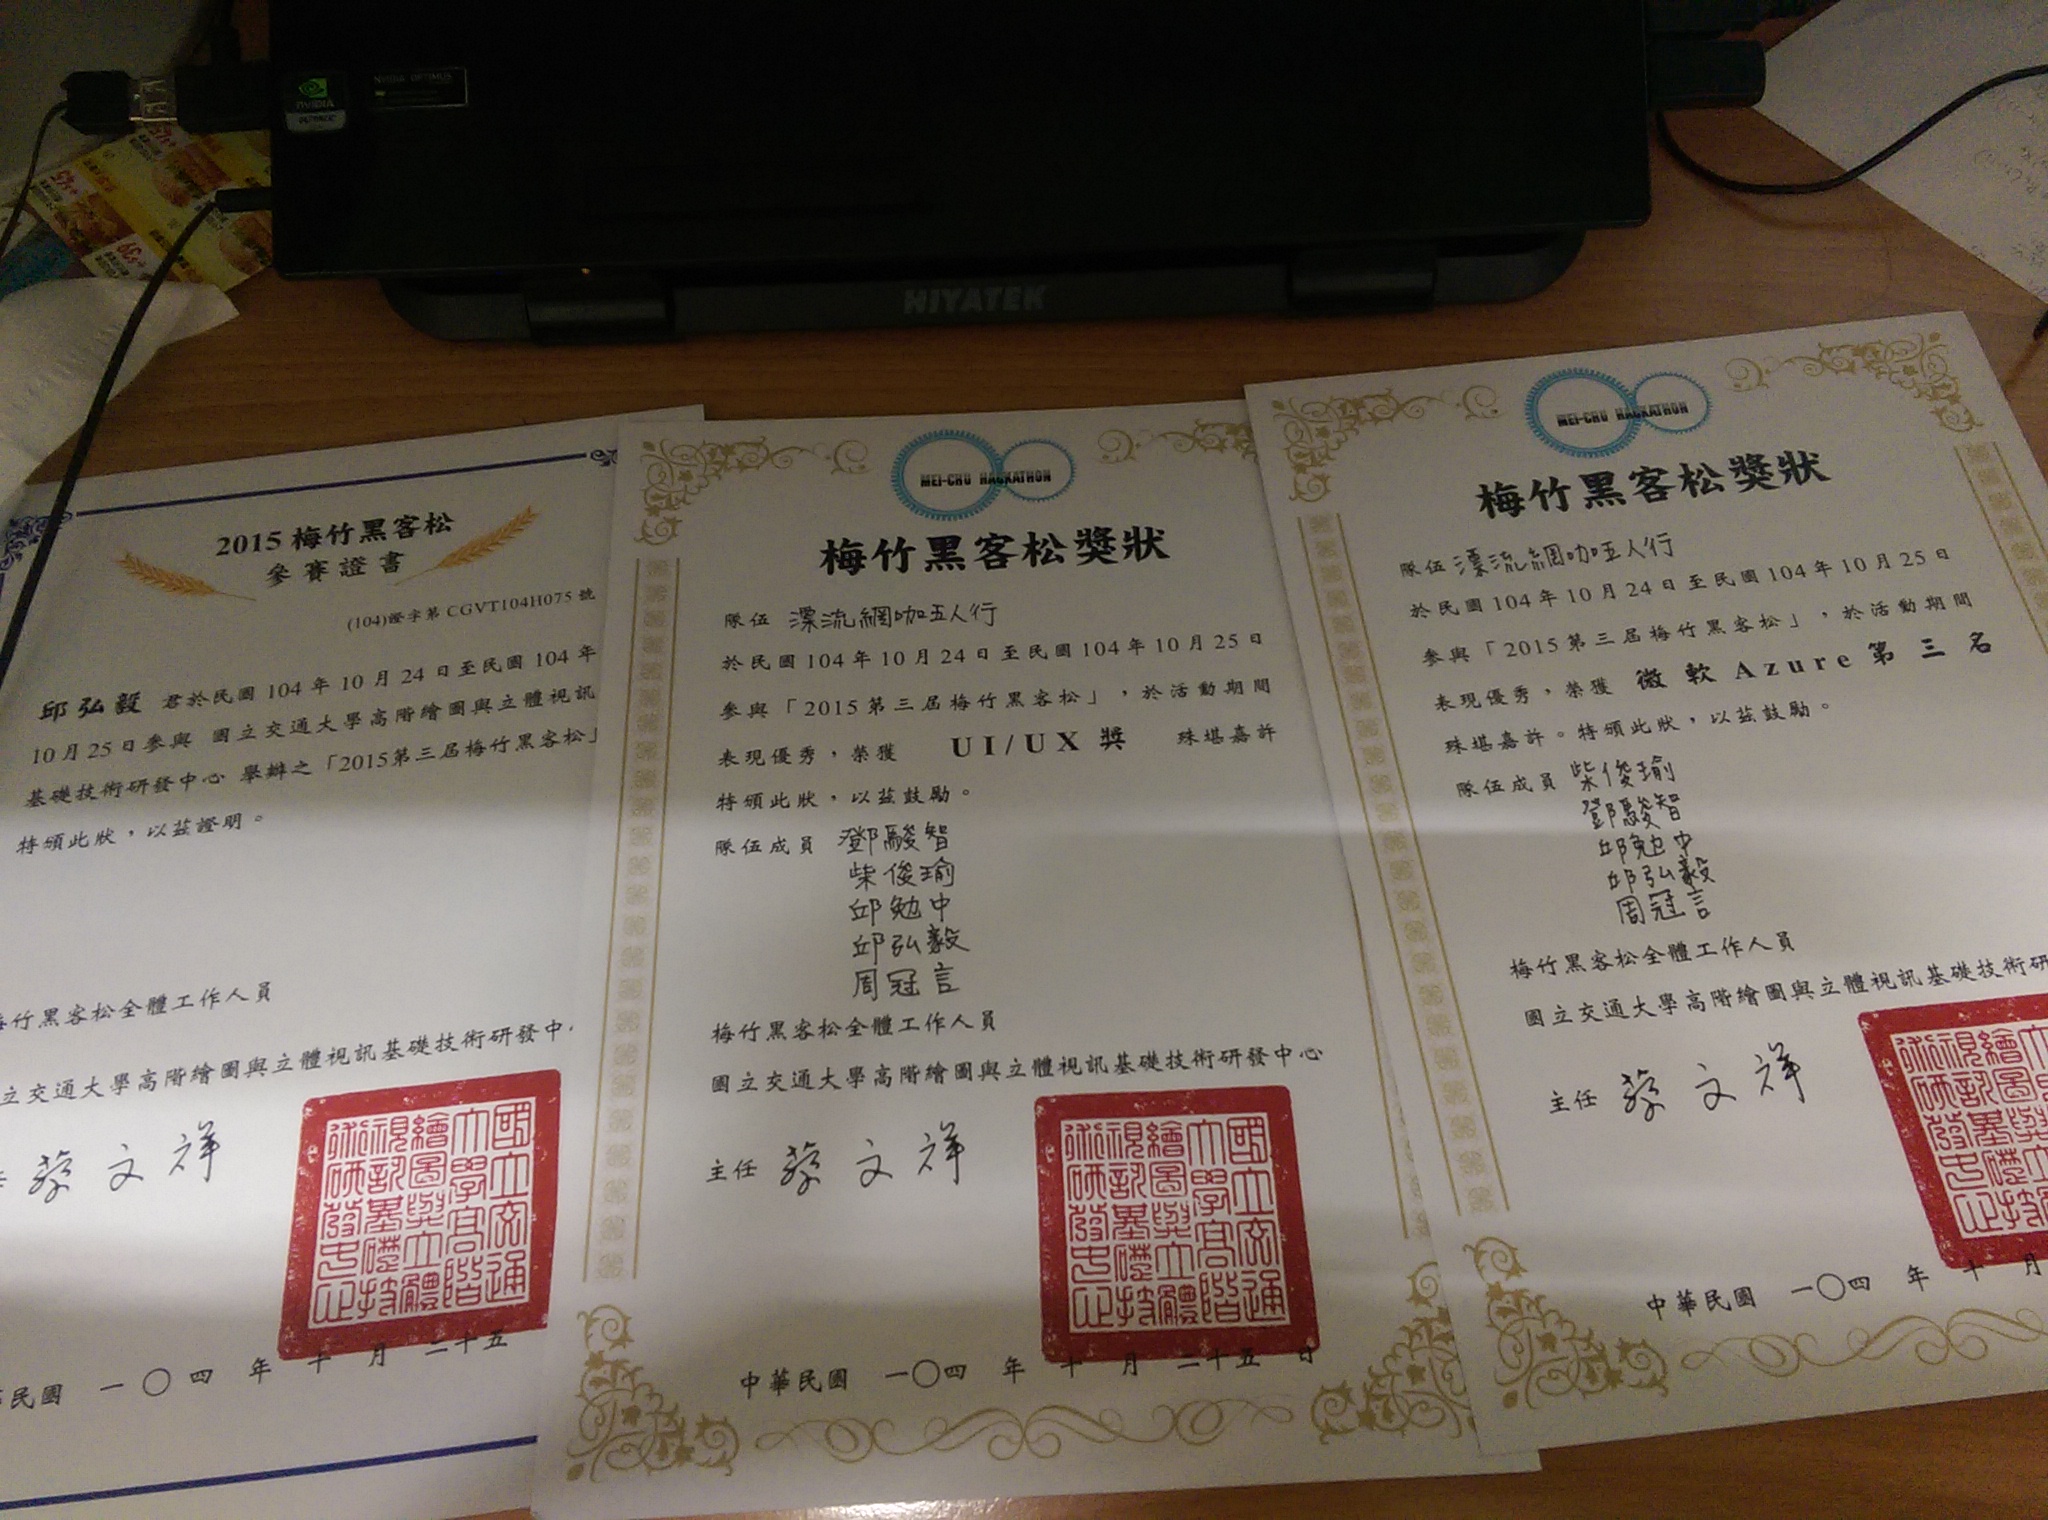 NVIDIA
NVIDIA OPTIMUS
HIYATEK
2015 梅竹黑客松
參賽證書
(104)證字第 CGVT104H075 號
邱弘毅 君於民國 104 年 10 月 24 日至民國 104 年
10 月 25 日參與 國立交通大學高階繪圖與立體視訊
基礎技術研發中心 舉辦之「2015第三屆梅竹黑客松」
特頒此狀，以茲證明。
梅竹黑客松全體工作人員
立交通大學高階繪圖與立體視訊基礎技術研發中
蔡文祥
國立交通大學高階繪圖與立體視訊基礎技術研發中心
民國 一〇四 年 十 月 二十五
MEI-CHU HACKATHON
梅竹黑客松獎狀
隊伍 漂流網咖五人行
於民國 104 年 10 月 24 日至民國 104 年 10 月 25 日
參與「2015 第三屆梅竹黑客松」，於活動期間
表現優秀，榮獲 UI/UX 獎 殊堪嘉許
特頒此狀，以茲鼓勵。
隊伍成員 鄧駿智
柴俊瑜
邱勉中
邱弘毅
周冠言
梅竹黑客松全體工作人員
國立交通大學高階繪圖與立體視訊基礎技術研發中心
主任 蔡文祥
國立交通大學高階繪圖與立體視訊基礎技術研發中心
中華民國 一〇四 年 十 月 二十五 日
MEI-CHU HACKATHON
梅竹黑客松獎狀
隊伍 漂流網咖五人行
於民國 104 年 10 月 24 日至民國 104 年 10 月 25 日
參與「2015 第三屆梅竹黑客松」，於活動期間
表現優秀，榮獲 微軟 Azure 第三名
殊堪嘉許。特頒此狀，以茲鼓勵。
隊伍成員 柴俊瑜
鄧駿智
邱勉中
邱弘毅
周冠言
梅竹黑客松全體工作人員
國立交通大學高階繪圖與立體視訊基礎技術研
主任 蔡文祥
中華民國 一〇四 年 十 月